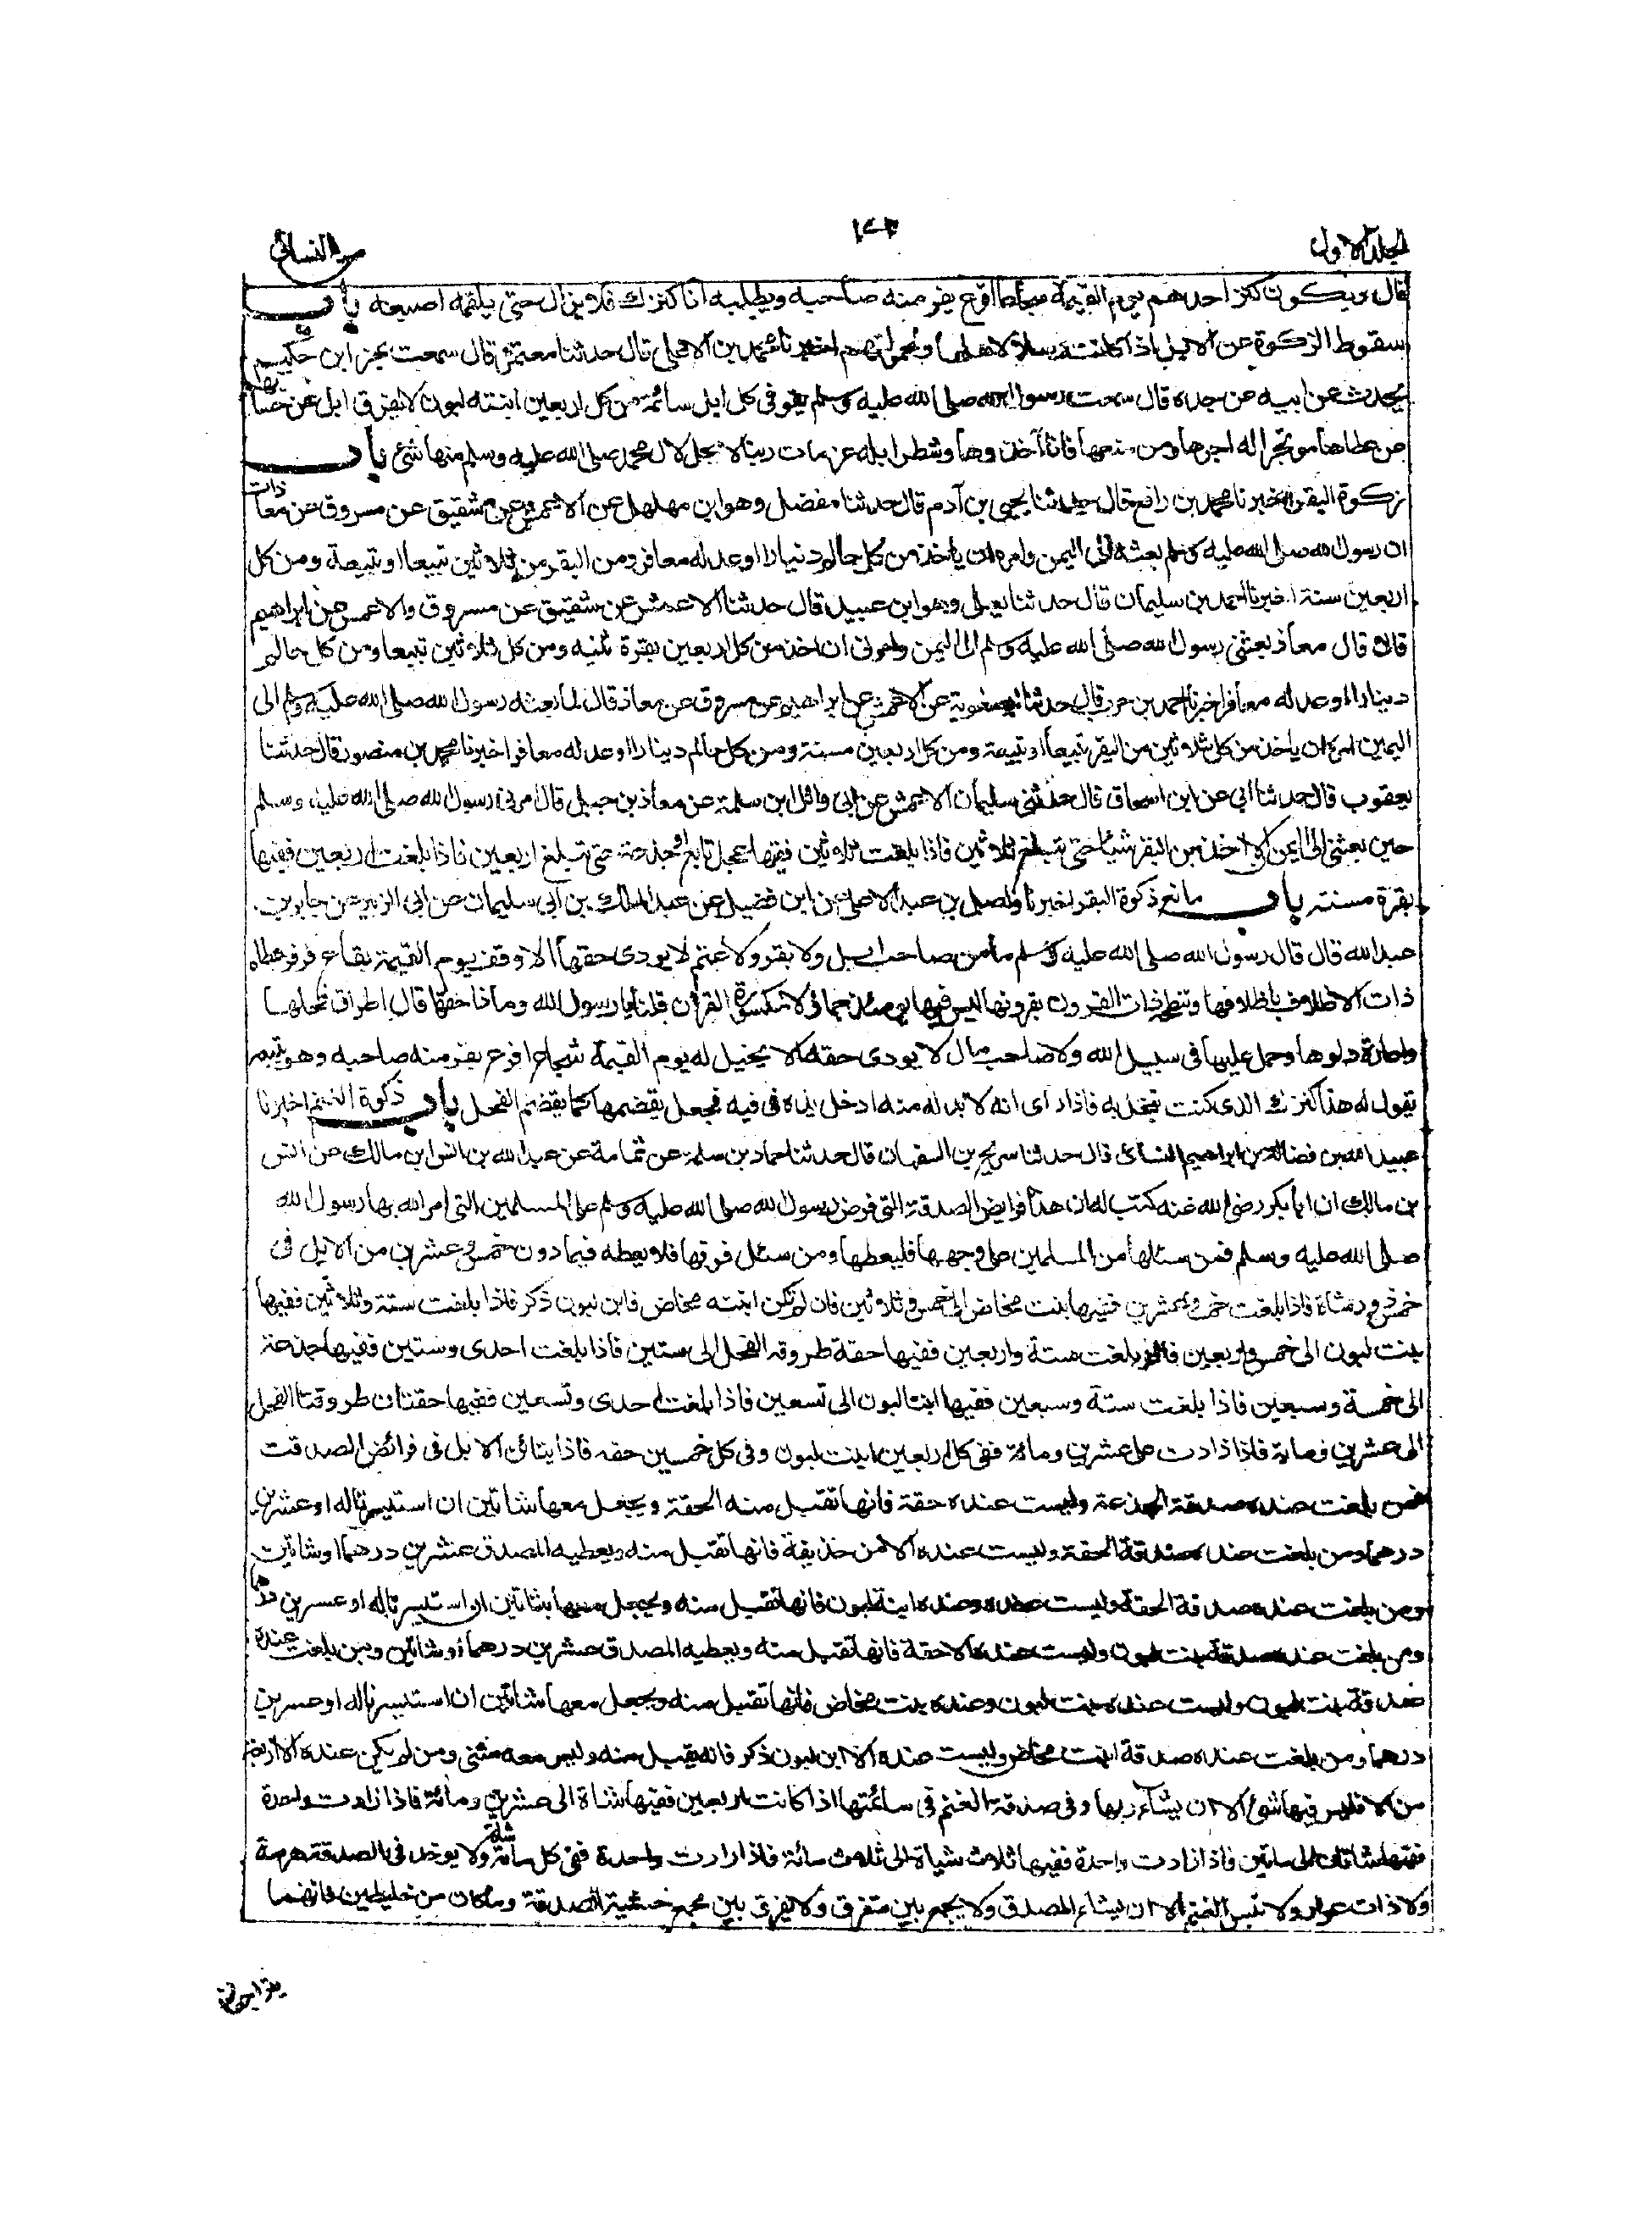 الجلد الاول
١٤٣
النسائي
قال ويكون كنز احدهم يوم القيمة شجاعا اقرع يفر منه صاحبه ويطلبه انا كنزك فلا يزال حتى يلقمه اصبعه باب
سقوط الزكوة عن الابل اذا كانت رسلا لاهلها ولحمولتهم اخبرنا محمد بن الاعلى قال حدثنا معتمر قال سمعت بهز ابن حكيم
يحدث عن ابيه عن جده قال سمعت رسول الله صلى الله عليه وسلم يقول فى كل ابل سائمة من كل اربعين ابنته لبون لا يفرق ابل عن حسابها
من عطاها موتجرا له اجرها ومن منعها فانا آخذوها وشطر ابله عزمات ربنا لا يحل لال محمد صلى الله عليه وسلم منها شئ باب
زكوة البقر اخبرنا محمد بن رافع قال حدثنا يحيى بن آدم قال حدثنا مفضل وهو ابن مهلهل عن الاعمش عن شقيق عن مسروق عن معاذ
ان رسول الله صلى الله عليه وسلم بعثه الى اليمن وامره ان ياخذ من كل حالم دنيارا او عدله معافر ومن البقر من ثلاثين تبيعا او تبيعة ومن كل
اربعين سنة اخبرنا احمد بن سليمان قال حدثنا يعلى وهو ابن عبيد قال حدثنا الاعمش عن شقيق عن مسروق والاعمش عن ابراهيم
قالا قال معاذ بعثنى رسول الله صلى الله عليه وسلم الى اليمن وامرنى ان اخذ من كل اربعين بقرة ثنيه ومن كل ثلاثين تبيعا ومن كل حالم
دينارا او عدله معافر اخبرنا احمد بن حرب قال حدثنا ابو معوية عن الاعمش عن ابراهيم عن مسروق عن معاذ قال لما بعثه رسول الله صلى الله عليه وسلم الى
اليمين امره ان ياخذ من كل ثلاثين من البقر تبيعا او تبيعة ومن كل اربعين مسنة ومن كل حالم دينارا او عدله معافر اخبرنا محمد بن منصور قال حدثنا
يعقوب قال حدثنا ابى عن ابن اسحاق قال حدثنى سليمان الاعمش عن ابى وائل ابن سلمة عن معاذ بن جبل قال امرنى رسول الله صلى الله عليه وسلم
حين بعثنى الى اليمن ان لا اخذ من البقر شيئا حتى تبلغ ثلاثين فاذا بلغت ثلاثين ففيها عجل تابع او جذعة حتى تبلغ اربعين فاذا بلغت اربعين ففيها
بقرة مسنته باب مانع ذكوة البقر اخبرنا واصل بن عبد الاعلى عن ابن فضيل عن عبد الملك بن ابى سليمان عن ابى الزبير عن جابر بن
عبد الله قال قال رسول الله صلى الله عليه وسلم ما من صاحب ابل ولا بقر ولا غنم لا يودى حقها الا وقف يوم القيمة بقاع قرقر تطاه
ذات الاظلاف باظلافها وتنطحه ذات القرون بقرونها ليس فيها يومئذ جماء ولا مكسورة القرآن قلنا يا رسول الله وماذا حقها قال اطراق فحلها
واعارة دلوها وحمل عليها فى سبيل الله ولا صاحب مال لا يودى حقه الا يخيل له يوم القيمة شجاع اقرع يفر منه صاحبه وهو يتبعه
يقول له هذا كنزك الذى كنت تبخل به فاذا راى انه لابد له منه ادخل يده فى فيه فجعل يقضمها كما يقضم الفحل باب ذكوة الغنم اخبرنا
عبيد الله بن فضالة بن ابراهيم النسائى قال حدثنا سريج بن النعمان قال حدثنا حماد بن سلمة عن ثمامة عن عبد الله بن انس ابن مالك عن انس
بن مالك ان ابا بكر رضى الله عنه كتب له ان هذا فرايض الصدقة التى فرض رسول الله صلى الله عليه وسلم على المسلمين التى امر الله بها رسول الله
صلى الله عليه وسلم فمن سئلها من المسلمين على وجهها فليعطها ومن سئل فوقها فلا يعطه فيما دون خمس وعشرين من الابل فى
خمس ذود شاة فاذا بلغت خمس وعشرين ففيها بنت مخاض الى خمس وثلاثين فان لم تكن ابنته مخاض فابن لبون ذكر فاذا بلغت ستة وثلاثين ففيها
بنت لبون الى خمس واربعين فاذا بلغت ستة واربعين ففيها حقة طروقه الفحل الى ستين فاذا بلغت احدى وستين ففيها جذعة
الى خمسة وسبعين فاذا بلغت ستة وسبعين ففيها ابنتا لبون الى تسعين فاذا بلغت احدى وتسعين ففيها حقتان طروقتا الفحل
الى عشرين ومائة فاذا زادت على عشرين ومائة ففى كل اربعين ابنت لبون وفى كل خمسين حقه فاذا تبائن الابل فى فرائض الصدقت
فمن بلغت عنده صدقة الجذعة وليست عنده حقة فانها تقبل منه الحقة ويجعل معها شاتين ان استيسرتا له او عشرين
درهما ومن بلغت عنده صدقة الحقة وليست عنده الا من جذيعة فانها تقبل منه ويعطيه المصدق عشرين درهما او شاتين
ومن بلغت عنده صدقة الحقة وليست عنده وعنده ابنة لبون فانها تقبل منه ويجعل معها شاتين ان استيسرتا له او عسرين درهما
ومن بلغت عنده صدقة بنت لبون وليست عنده الا حقة فانها تقبل منه ويعطيه المصدق عشرين درهما او شاتين ومن بلغت عنده
صدقة بنت لبون وليست عنده بنت لبون وعنده بنت مخاض فانها تقبل منه ويجعل معها شاتين ان استيسرتا له او عسرين
درهما ومن بلغت عنده صدقة ابنت مخاض وليست عنده الا ابن لبون ذكر فانه يقبل منه وليس معه شئ ومن لم يكن عنده الا اربعة
من الابل فليس فيها شئ الا ان يشاء ربها وفى صدقة الغنم فى سائمتها اذا كانت اربعين ففيها شاة الى عشرين ومائة فاذا زادت واحدة
ففيها شاتان الى مائتين فاذا زادت واحدة ففيها ثلاث شياة الى ثلاث مائة فاذا زادت واحدة ففى كل مائة شاة ولا يوخذ فى الصدقة هرمة
ولا ذات عوار ولا تيس الغنم الا ان يشاء المصدق ولا يجمع بين متفرق ولا يفرق بين مجمع خشية الصدقة وما كان من خليطين فانهما